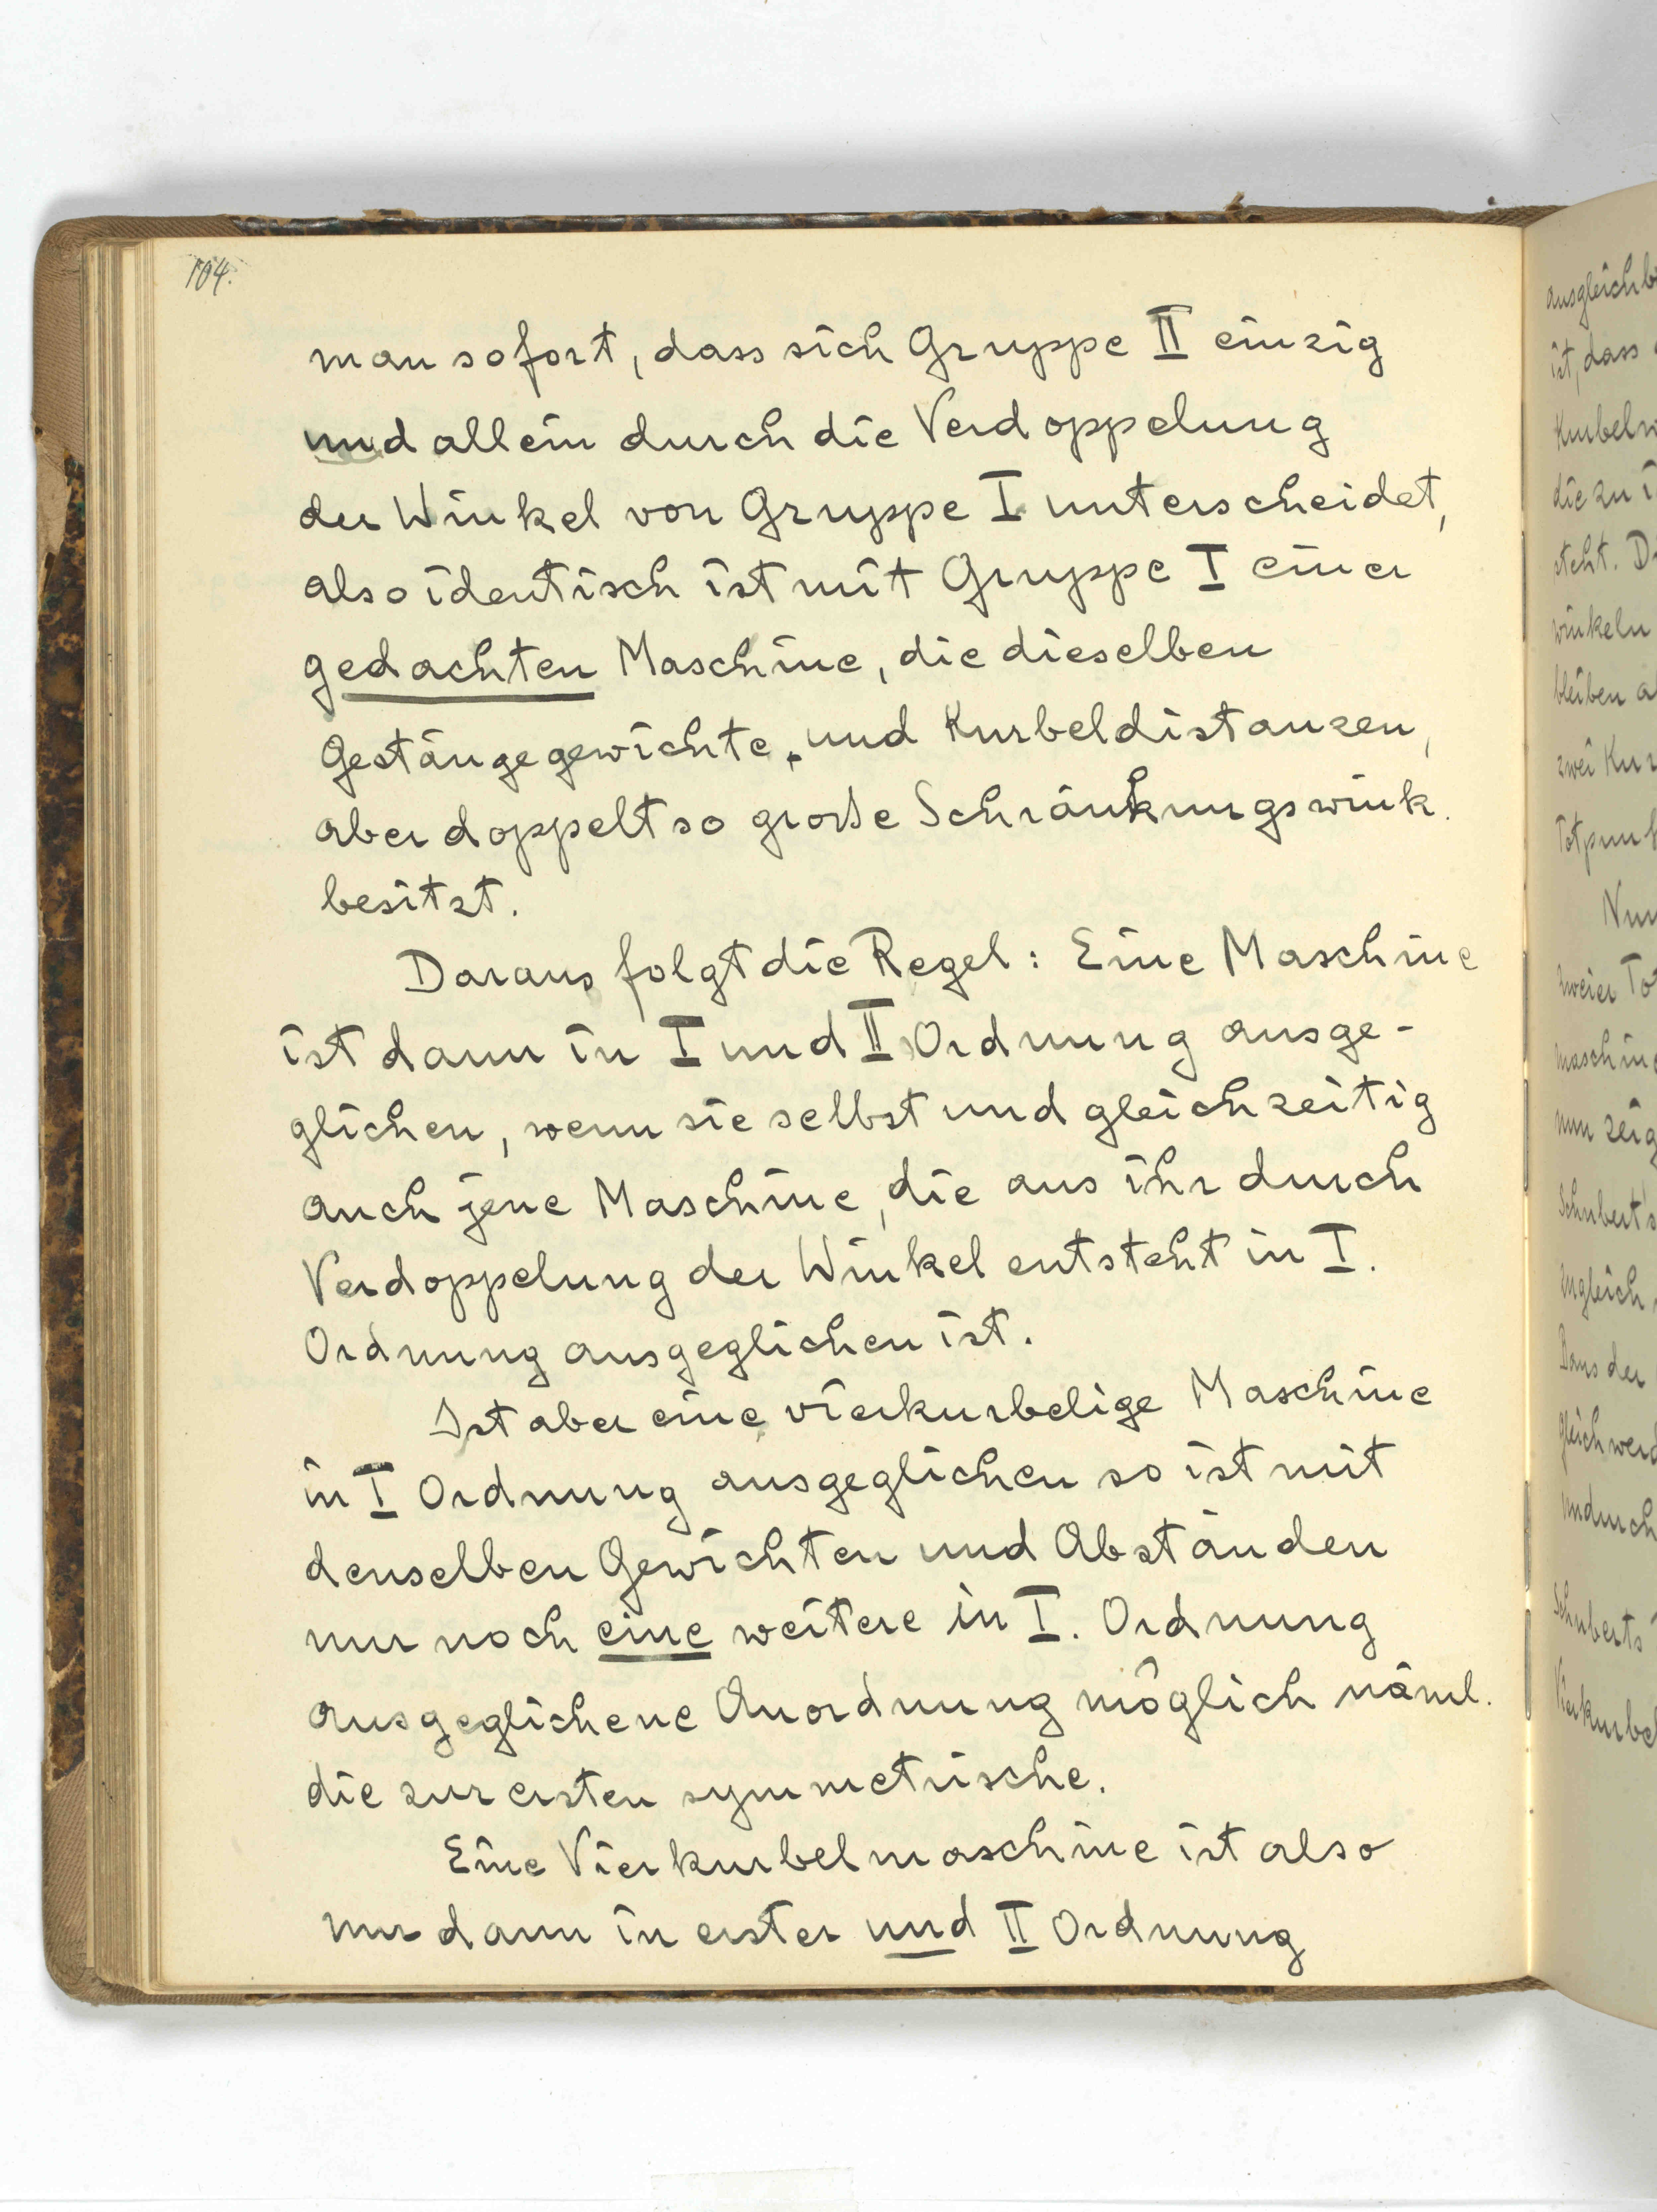 104.
man sofort, dass sich Gruppe II einzig
und allein durch die Verdoppelung
der Winkel von Gruppe I unterscheidet,
also identisch ist mit Gruppe I einer
gedachten Maschine, die dieselben
Gestängegewichte, und Kurbeldistanzen,
aber doppelt so große Schränkungswink.
besitzt.
Daraus folgt die Regel: Eine Maschine
ist dann in I und II Ordnung ausge-
glichen, wenn sie selbst und gleichzeitig
auch jene Maschine, die aus ihr durch
Verdoppelung der Winkel entsteht in I.
Ordnung ausgeglichen ist.
Ist aber eine vierkurbelige Maschine
in I Ordnung ausgeglichen so ist mit
denselben Gewichten und Abständen
nur noch eine weitere in I. Ordnung
ausgeglichene Anordnung möglich näml.
die zur ersten symmetrische.
Eine Vierkurbelmaschine ist also
nur dann in erster und II Ordnung
ausgleichb
ist, dass
Kurbelw
die zu i
steht. D
winkeln
bleiben a
zwei Kur
Totpunk
Nun
zweier To
maschine
nun zeig
Schubert's
zugleich
Dans der
gleich werd
Schuberts
Vierkurbel